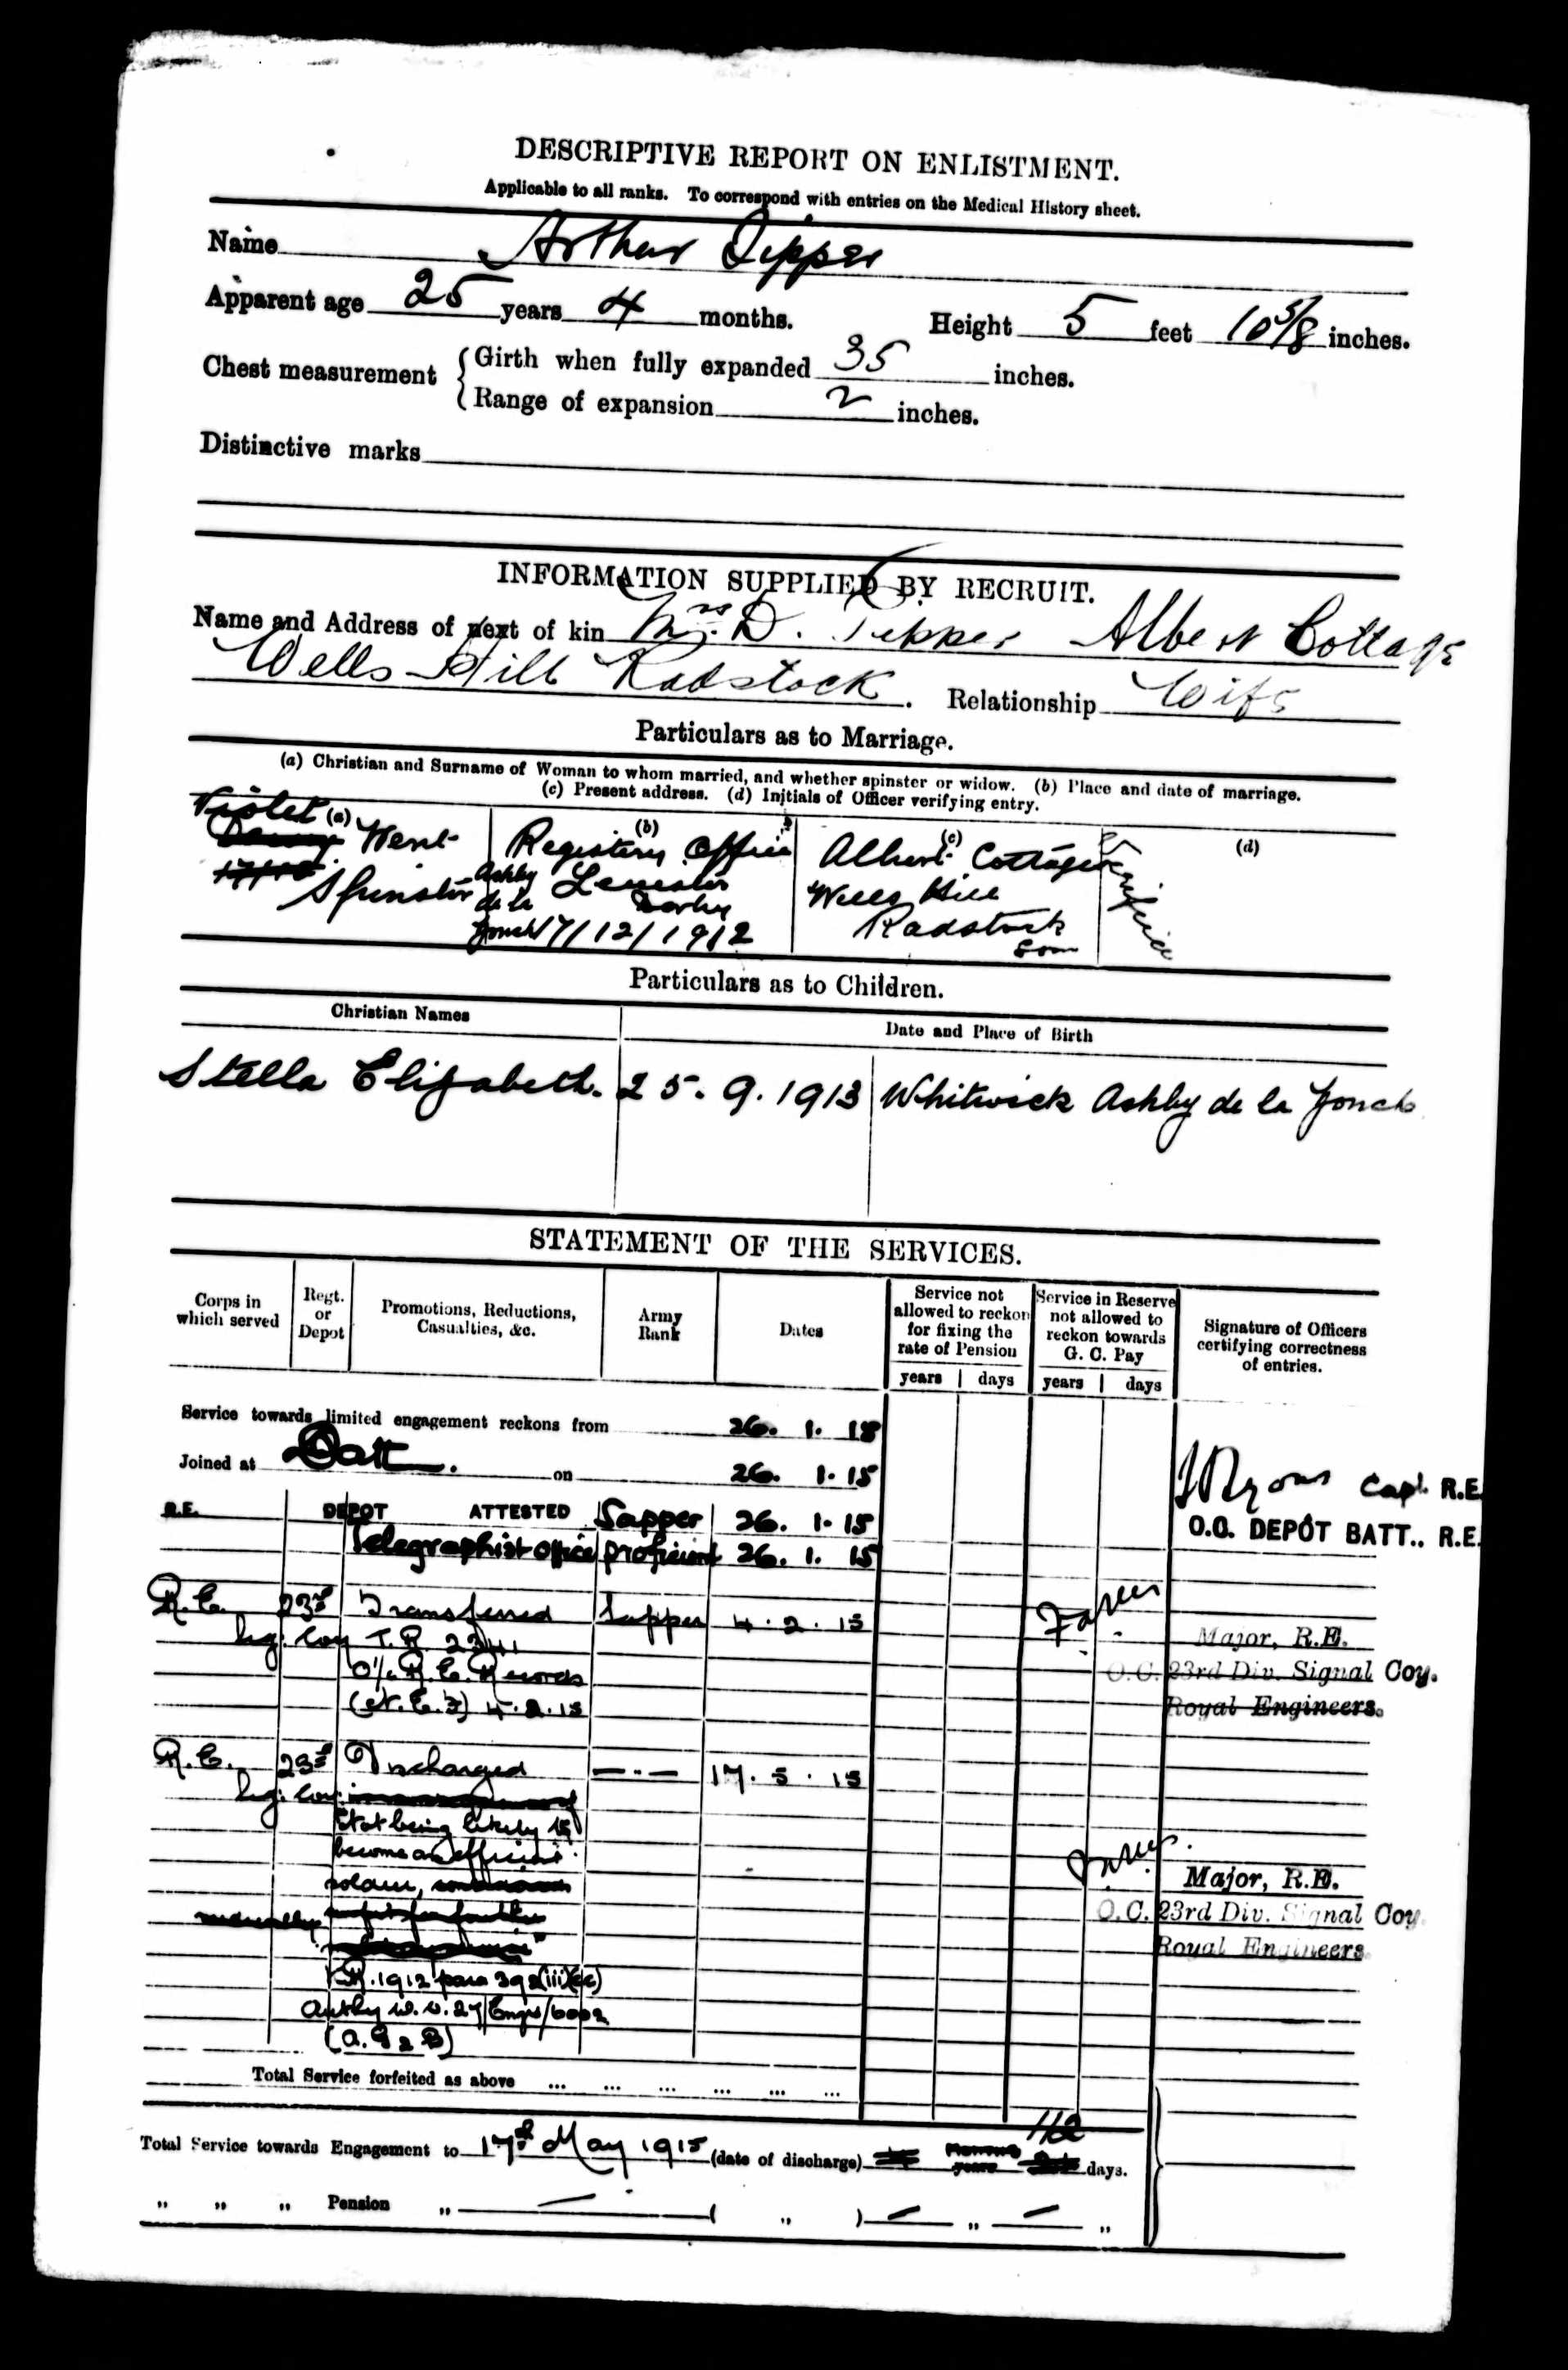 DESCRIPTIVE REPORT ON ENLISTMENT.
Applicable to all ranks. To correspond with entries on the Medical History sheet.
Name Arthur Tipper
Apparent age 25 years 4 months. Height 5 feet 10 5/8 inches.
Chest measurement { Girth when fully expanded 35 inches.
Range of expansion 2 inches.
Distinctive marks
INFORMATION SUPPLIED BY RECRUIT.
Name and Address of next of kin Mrs. D. Tipper Albert Cottage
Wells Hill Radstock. Relationship Wife
Particulars as to Marriage.
(a) Christian and Surname of Woman to whom married, and whether spinster or widow. (b) Place and date of marriage.
(c) Present address. (d) Initials of Officer verifying entry.
Violet (a) (b) (c) (d)
Went Registery Office Albert Cottage
Spinster Ashby Leicester Wells Hill
de la Derby Radstock
Zouch 17/12/1912 Som
Particulars as to Children.
Christian Names Date and Place of Birth
Stella Elizabeth. 25. 9. 1913 Whitwick Ashby de la Zouch
STATEMENT OF THE SERVICES.
Corps in which served Regt. or Depot Promotions, Reductions, Casualties, &c. Army Rank Dates Service not allowed to reckon for fixing the rate of Pension Service in Reserve not allowed to reckon towards G. C. Pay Signature of Officers certifying correctness of entries.
years days years days
Service towards limited engagement reckons from 26. 1. 15
Joined at on 26. 1. 15
Capt. R.E.
R.E. DEPOT ATTESTED Sapper 26. 1. 15 O.C. DEPÔT BATT., R.E.
Telegraphist office proficient 26. 1. 15
R.E. 23rd Transferred Sapper 4. 2. 15
Sig. Coy Major, R.E.
O/c R.E. Records O.C. 23rd Div. Signal Coy.
4.2.15 Royal Engineers.
R.E. 23rd Discharged —.— 17. 5. 15
Sig. Coy
Not being likely to
become an efficient
soldier, Major, R.E.
medically O.C. 23rd Div. Signal Coy.
Royal Engineers.
K.R. 1912 para 392 (iii)(cc)
Authy W.O. 27/Engrs/6002
(A.G 2 B)
Total Service forfeited as above ... ... ... ... ... ...
112
Total Service towards Engagement to 17th May 1915 (date of discharge) years days.
„ „ „ Pension „ — ( „ ) — „ — „